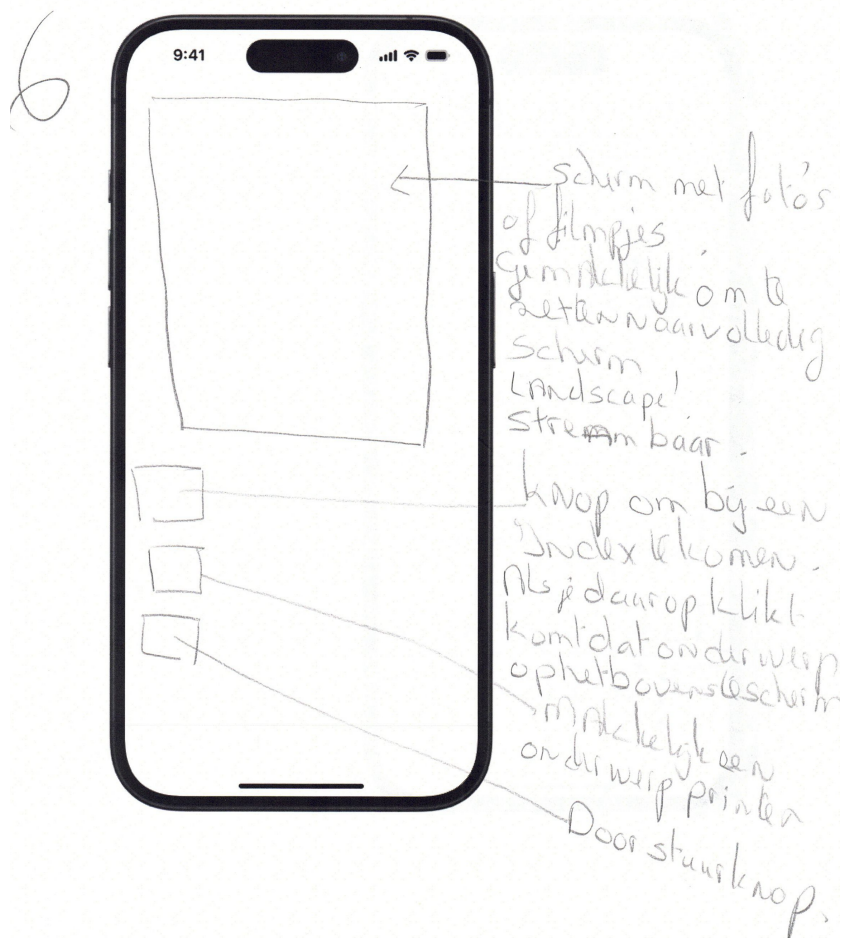 6
9:41
scherm met foto's
of filmpjes
Gemakkelijk om te
zetten naar volledig
scherm
LANdscape!
streambaar.
knop om bij een
"Index te komen.
Als je daarop klikt
komt dat onderwerp
op het bovenste scherm
MAkkelijk een
onderwerp printen
Doorstuurknop.